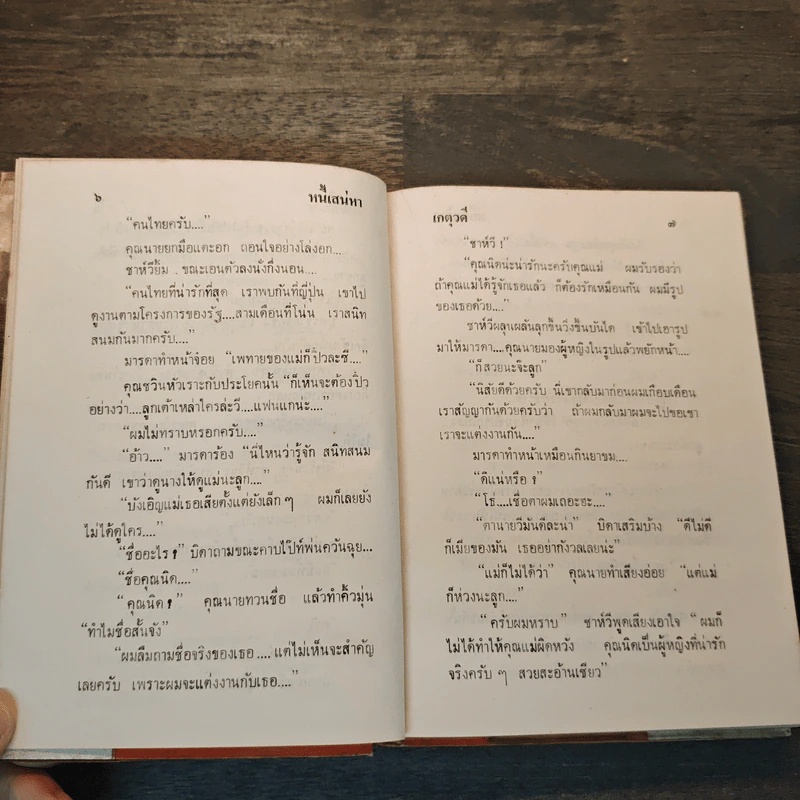 ๖ หนี้เสน่หา
“คนไทยครับ....”
คุณนายยกมือแตะอก ถอนใจอย่างโล่งอก....
ชาห์วียิ้ม ขณะเอนตัวลงนั่งกึ่งนอน....
“คนไทยที่น่ารักที่สุด เราพบกันที่ญี่ปุ่น เขาไป
ดูงานตามโครงการของรัฐ....สามเดือนที่โน่น เราสนิท
สนมกันมากครับ....”
มารดาทำหน้าจ๋อย “เพทายของแม่ก็ปิ๋วละซี....”
คุณชวินหัวเราะกับประโยคนั้น “ก็เห็นจะต้องปิ๋ว
อย่างว่า....ลูกเต้าเหล่าใครล่ะวี....แฟนแกน่ะ....”
“ผมไม่ทราบหรอกครับ....”
“อ้าว....” มารดาร้อง “นี่ไหนว่ารู้จัก สนิทสนม
กันดี เขาว่าดูนางให้ดูแม่นะลูก....”
“บังเอิญแม่เธอเสียตั้งแต่ยังเล็กๆ ผมก็เลยยัง
ไม่ได้ดูใคร....”
“ชื่ออะไร ?” บิดาถามขณะคาบไป๊ท์พ่นควันฉุย...
“ชื่อคุณนิด....”
“คุณนิด ?” คุณนายทวนชื่อ แล้วทำคิ้วมุ่น
“ทำไมชื่อสั้นจัง”
“ผมลืมถามชื่อจริงของเธอ....แต่ไม่เห็นจะสำคัญ
เลยครับ เพราะผมจะแต่งงานกับเธอ....”
เกตุวดี ๗
“ชาห์วี !”
“คุณนิดน่ะน่ารักนะครับคุณแม่ ผมรับรองว่า
ถ้าคุณแม่ได้รู้จักเธอแล้ว ก็ต้องรักเหมือนกัน ผมมีรูป
ของเธอด้วย....”
ชาห์วีผลุนผลันลุกขึ้นวิ่งขึ้นบันได เข้าไปเอารูป
มาให้มารดา....คุณนายมองผู้หญิงในรูปแล้วพยักหน้า....
“ก็สวยนะจ๊ะลูก”
“นิสัยดีด้วยครับ นี่เขากลับมาก่อนผมเกือบเดือน
เราสัญญากันด้วยครับว่า ถ้าผมกลับมาผมจะไปขอเขา
เราจะแต่งงานกัน....”
มารดาทำหน้าเหมือนกินยาขม....
“ดีแน่หรือ ?”
“โธ่....เชื่อตาผมเถอะฮะ....”
“ตานายวีมันดีละน่า” บิดาเสริมบ้าง “ดีไม่ดี
ก็เมียของมัน เธออย่ากังวลเลยน่ะ”
“แม่ก็ไม่ได้ว่า” คุณนายทำเสียงอ่อย “แต่แม่
ก็ห่วงนะลูก....”
“ครับผมทราบ” ชาห์วีพูดเสียงเอาใจ “ผมก็
ไม่ได้ทำให้คุณแม่ผิดหวัง คุณนิดเป็นผู้หญิงที่น่ารัก
จริงครับ ๆ สวยสะอ้านเชียว”